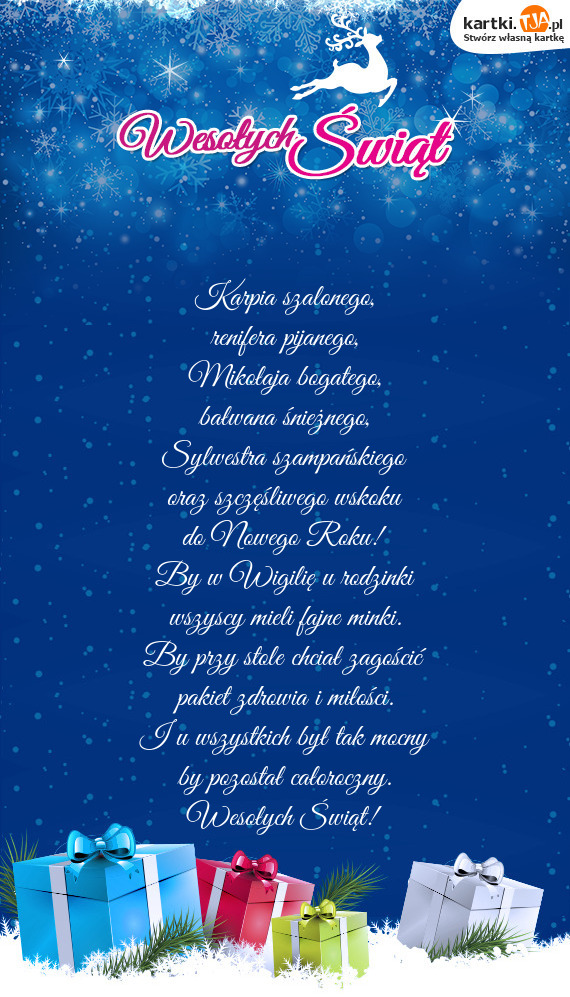 kartki.TJA.pl
Stwórz własną kartkę
Wesołych Świąt
Karpia szalonego,
renifera pijanego,
Mikołaja bogatego,
bałwana śnieżnego,
Sylwestra szampańskiego
oraz szczęśliwego wskoku
do Nowego Roku!
By w Wigilię u rodzinki
wszyscy mieli fajne minki.
By przy stole chciał zagościć
pakiet zdrowia i miłości.
I u wszystkich był tak mocny
by pozostał całoroczny.
Wesołych Świąt!